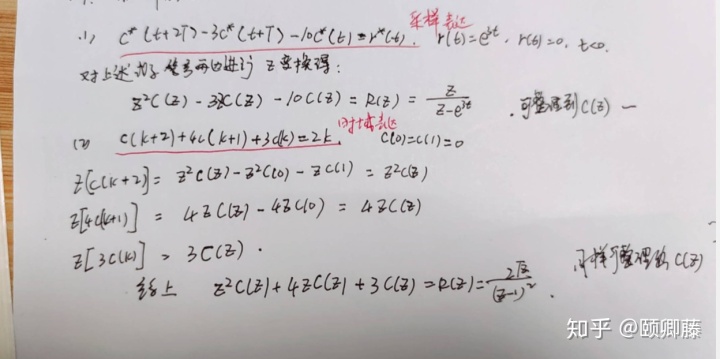 采样表达
(1) c*(t+2T)-3c*(t+T)-10c*(t)=r*(t). r(t)=e^{3t}, r(t)=0, t<0.
对上述式子等号两边进行Z变换得:
z²C(z)-3zC(z)-10C(z)=R(z)=z/(z-e^{3t}) . 可整理到C(z)
时域表达
(2) c(k+2)+4c(k+1)+3c(k)=2k, c(0)=c(1)=0
Z[c(k+2)]= z²C(z)-z²C(0)-zC(1)=z²C(z)
Z[4c(k+1)] = 4zC(z)-4zC(0) = 4zC(z)
Z[3C(k)] = 3C(z).
综上 z²C(z)+4zC(z)+3C(z)=R(z)=2z/(z-1)². 同样可整理的C(z)
知乎 @颐卿藤